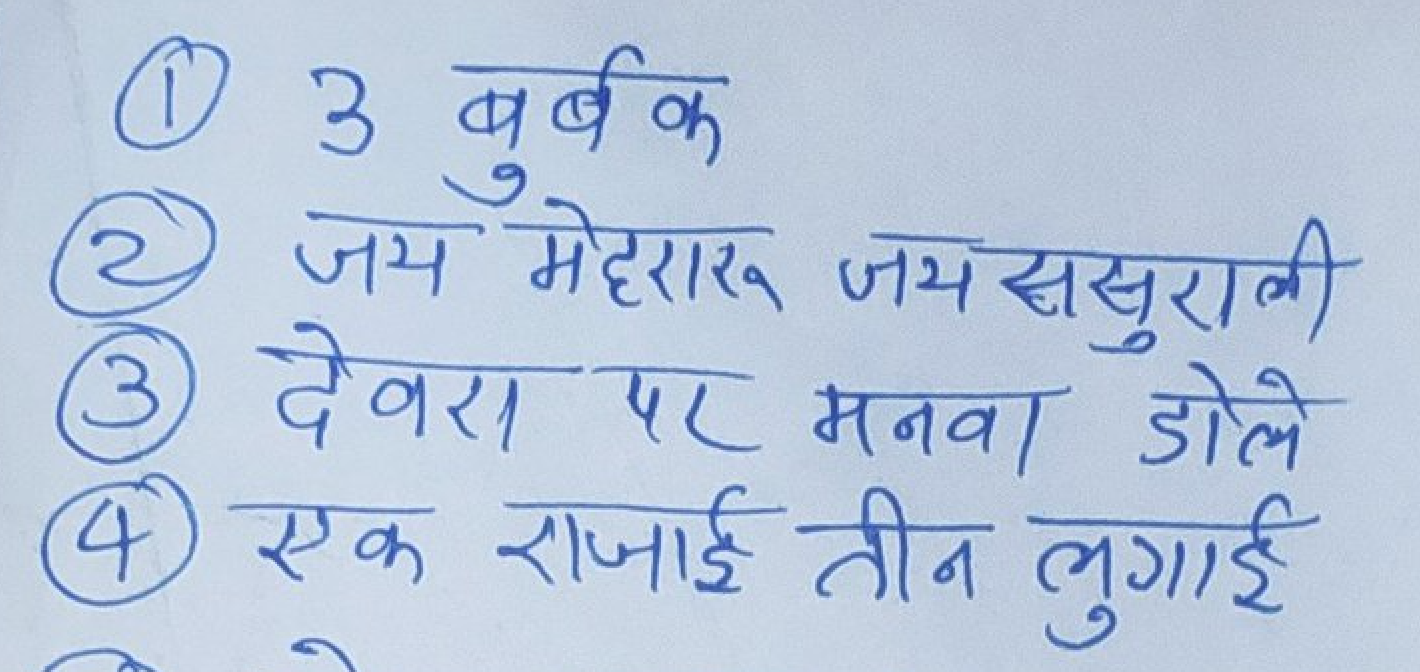 ① 3 बुर्बक
② जय मेहरारू जय ससुराली
③ देवरा पर मनवा डोले
④ एक राजाई तीन लुगाई